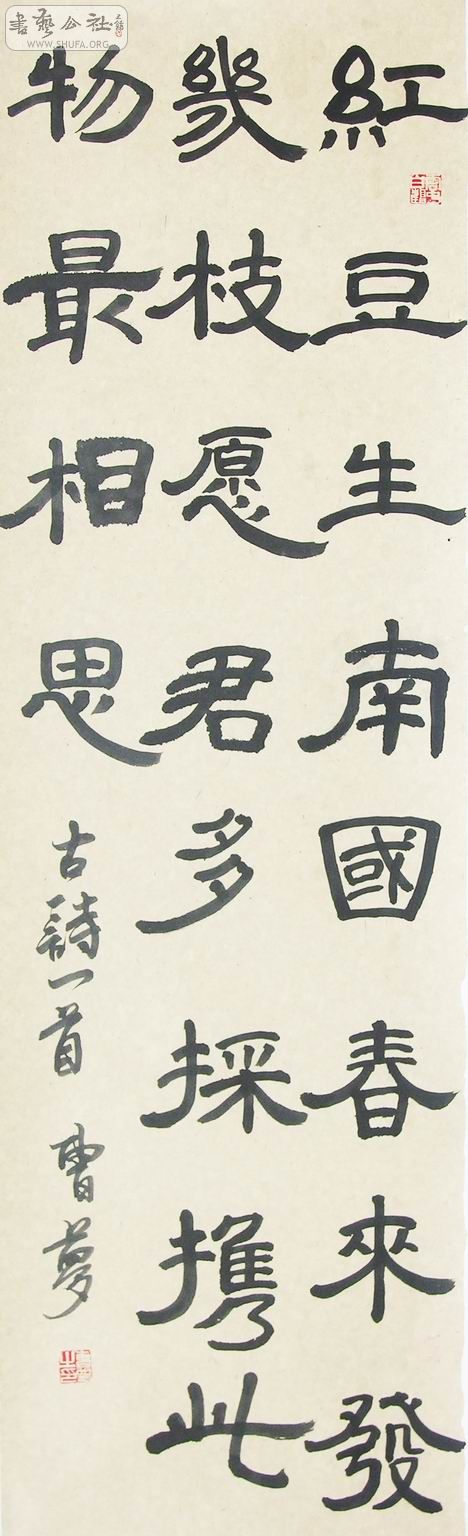 書藝公社
WWW.SHUFA.ORG
紅豆生南國春來發
幾枝愿君多採携此
物最相思
古詩一首 曹夢